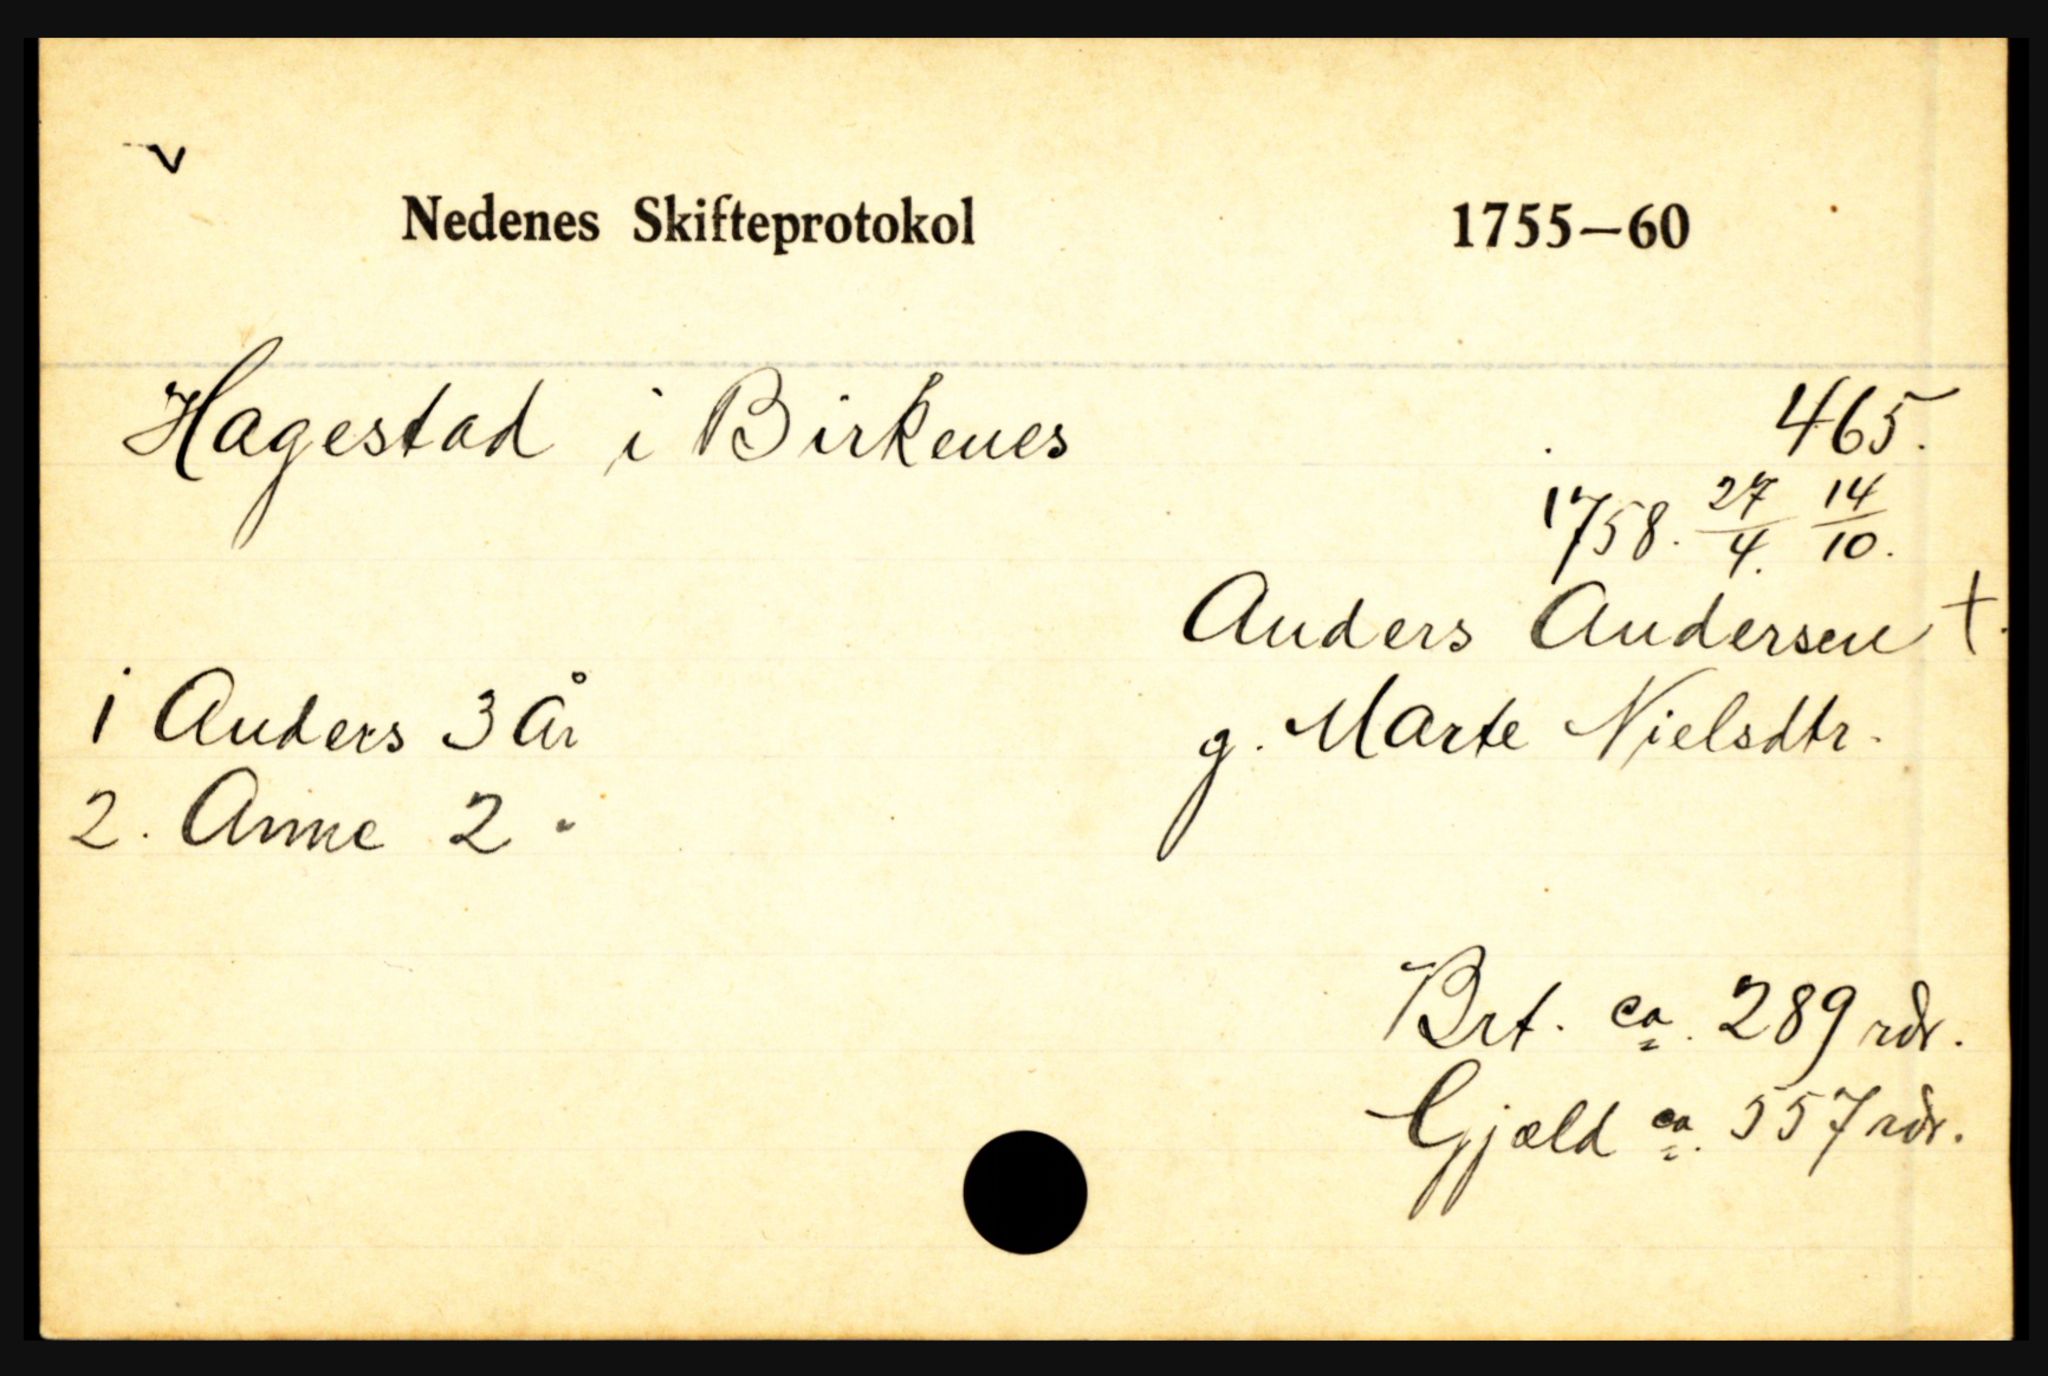 v
Nedenes Skifteprotokol 1755—60
Hagestad i Birkenes 465.
1758. 27/4. 14/10.
Anders Andersen †.
g. Marte Nielsdtr.
1 Anders 3 År
2. Anne 2 "
Brt. ca. 289 rdr.
Gjæld ca. 557 rdr.